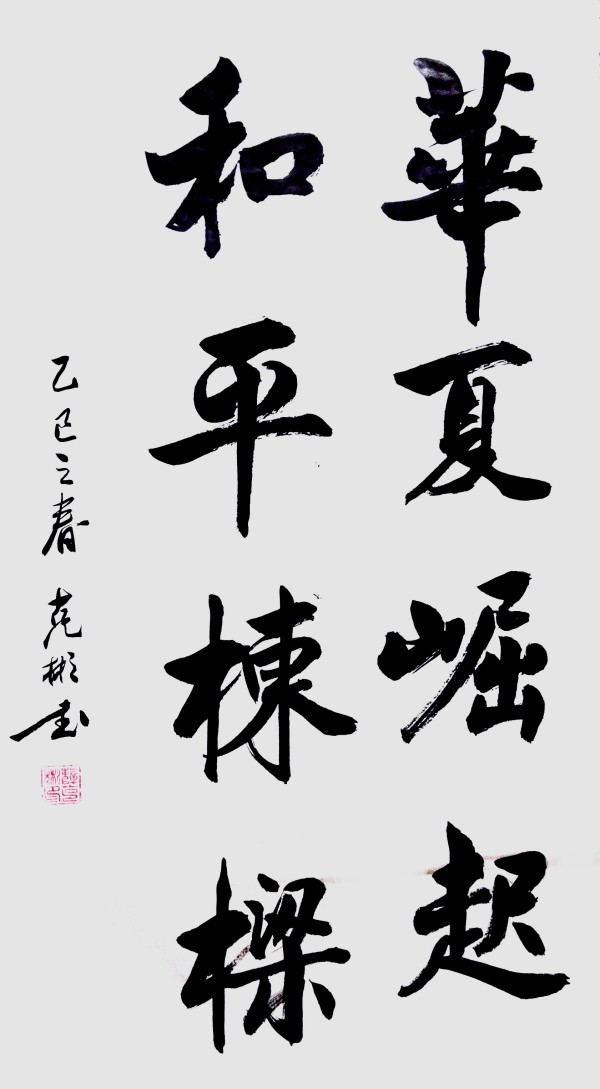 華夏崛起
和平棟樑
乙巳之春 范彬書